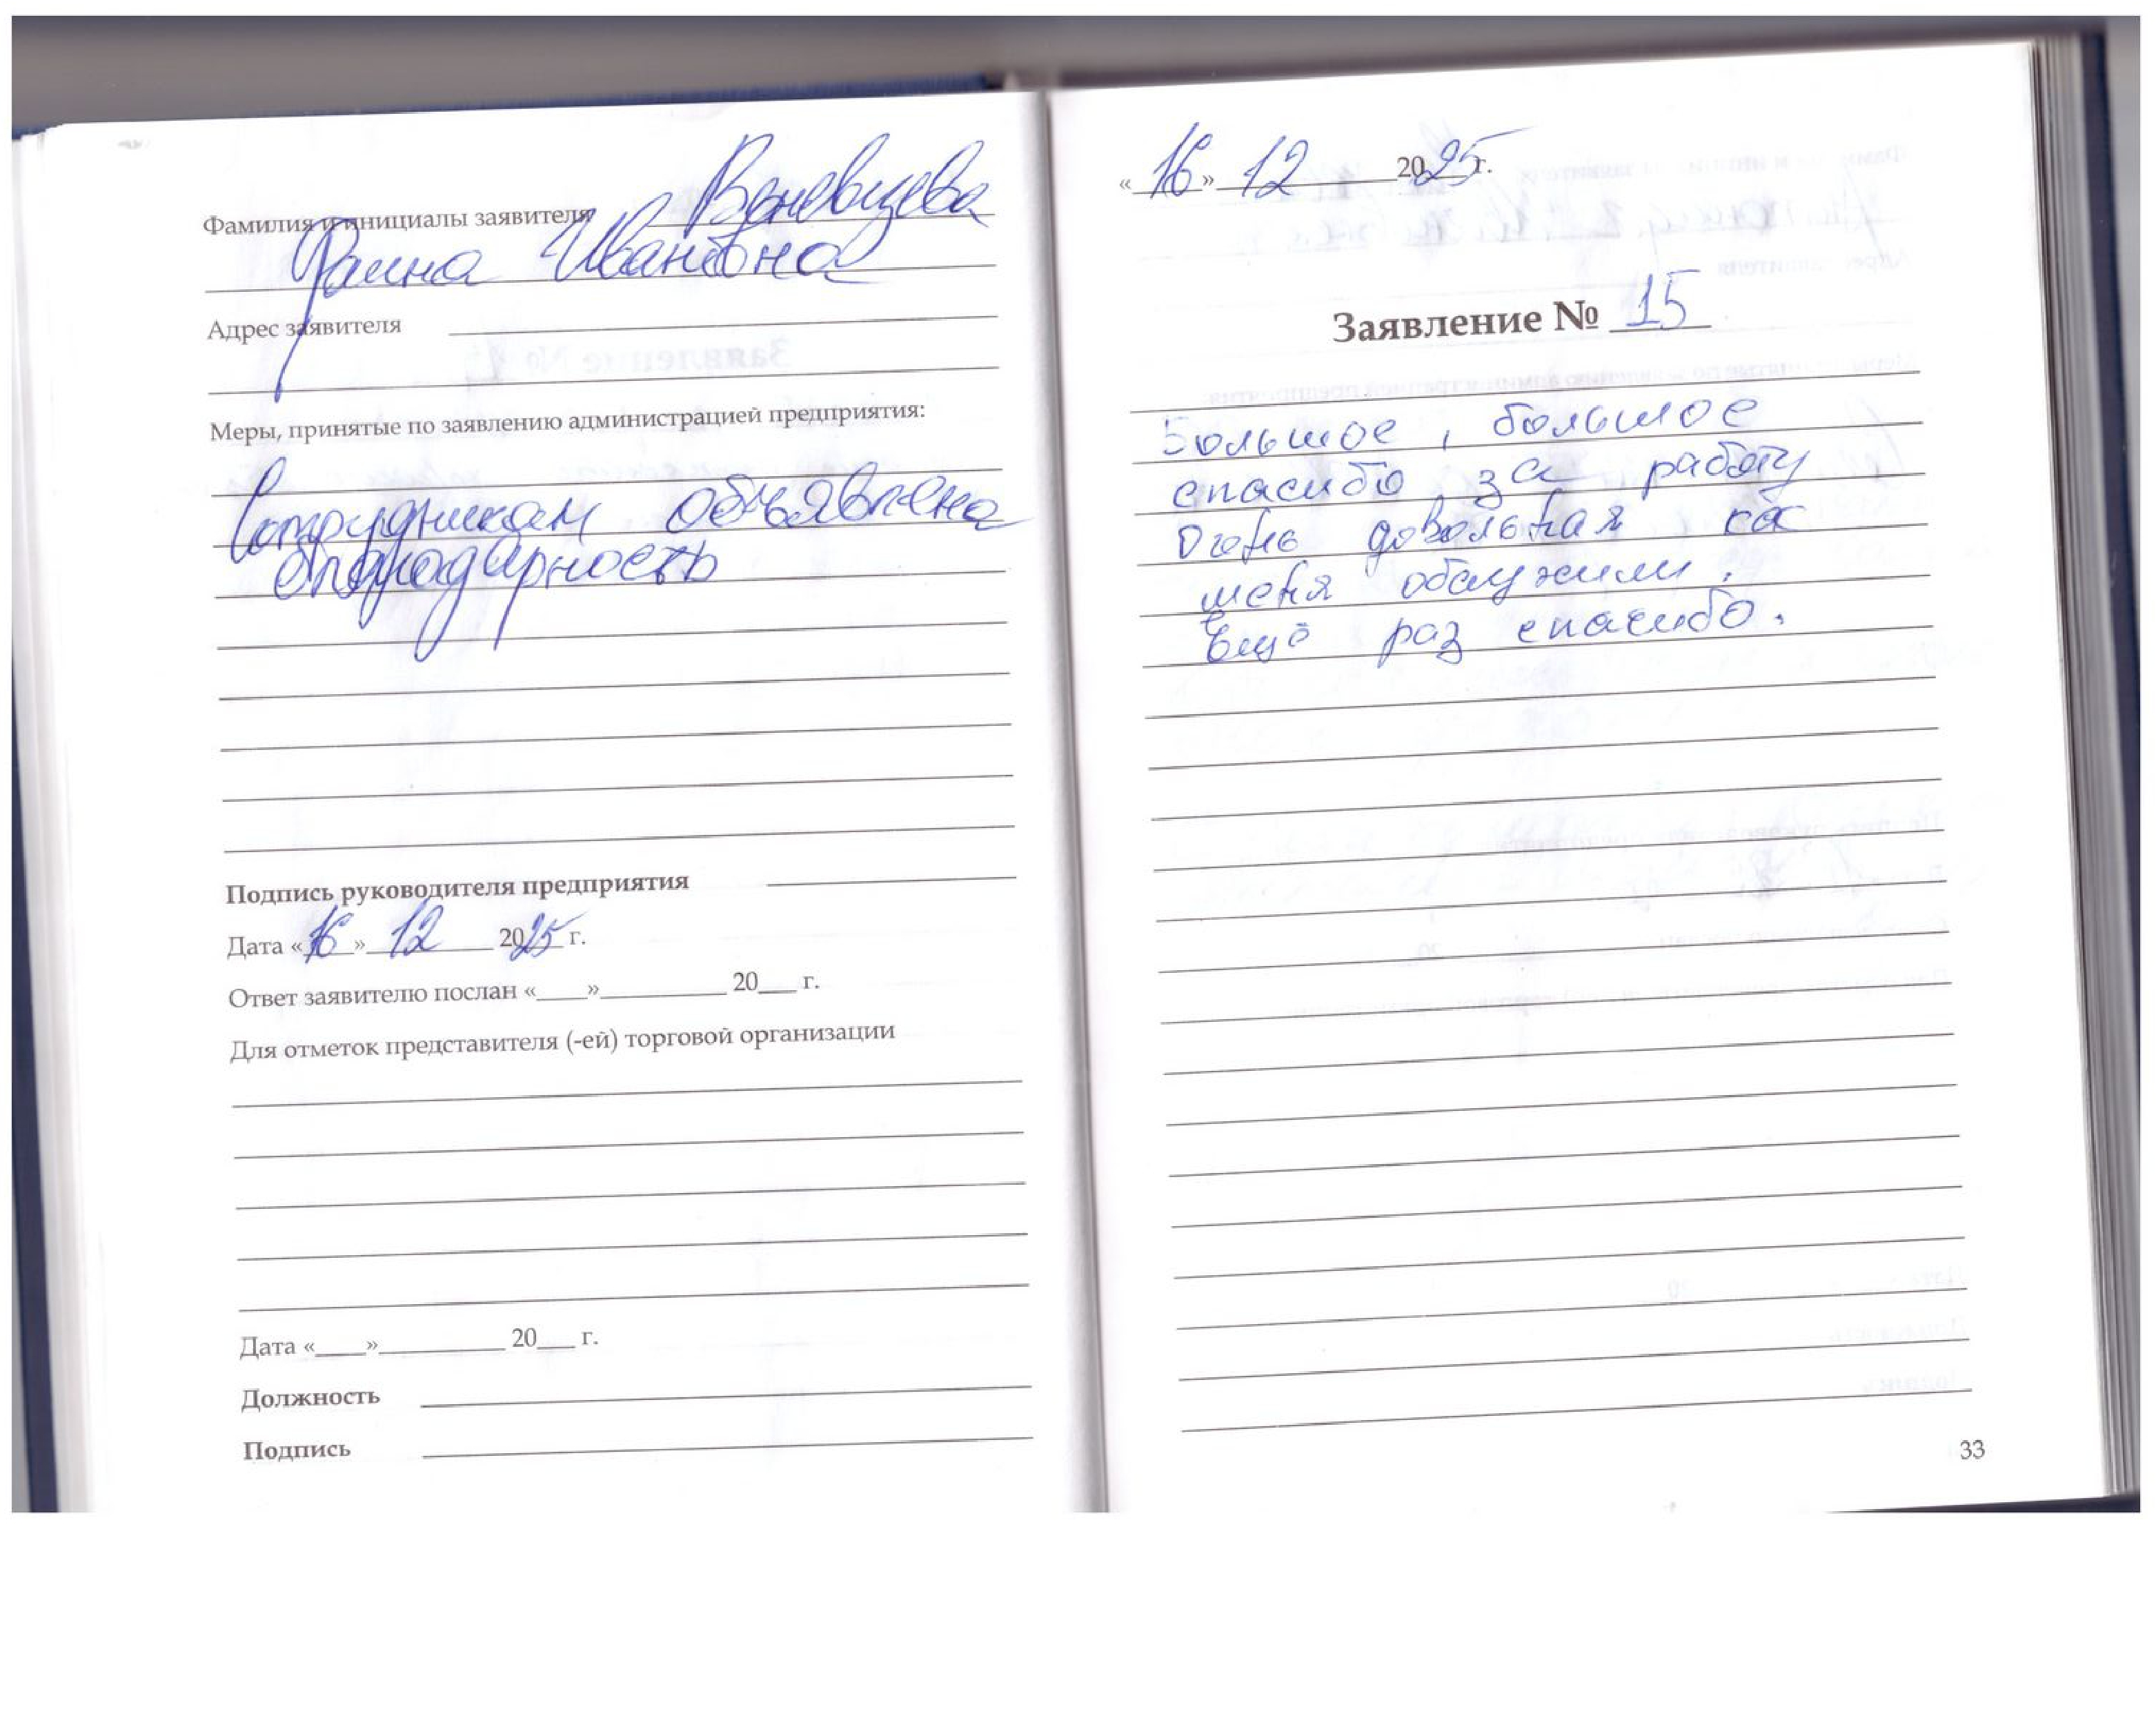 Фамилия и инициалы заявителя Веневцева
Раина Ивановна
Адрес заявителя
Меры, принятые по заявлению администрацией предприятия:
Сотрудникам объявлена
благодарность
Подпись руководителя предприятия
Дата «16» 12 2025 г.
Ответ заявителю послан «___»_________ 20___ г.
Для отметок представителя (-ей) торговой организации
Дата «___»_________ 20___ г.
Должность
Подпись
«16» 12 2025 г.
Заявление № 15
Большое, большое
спасибо за работу
Очень довольная как
меня обслужили.
Ещё раз спасибо.
33